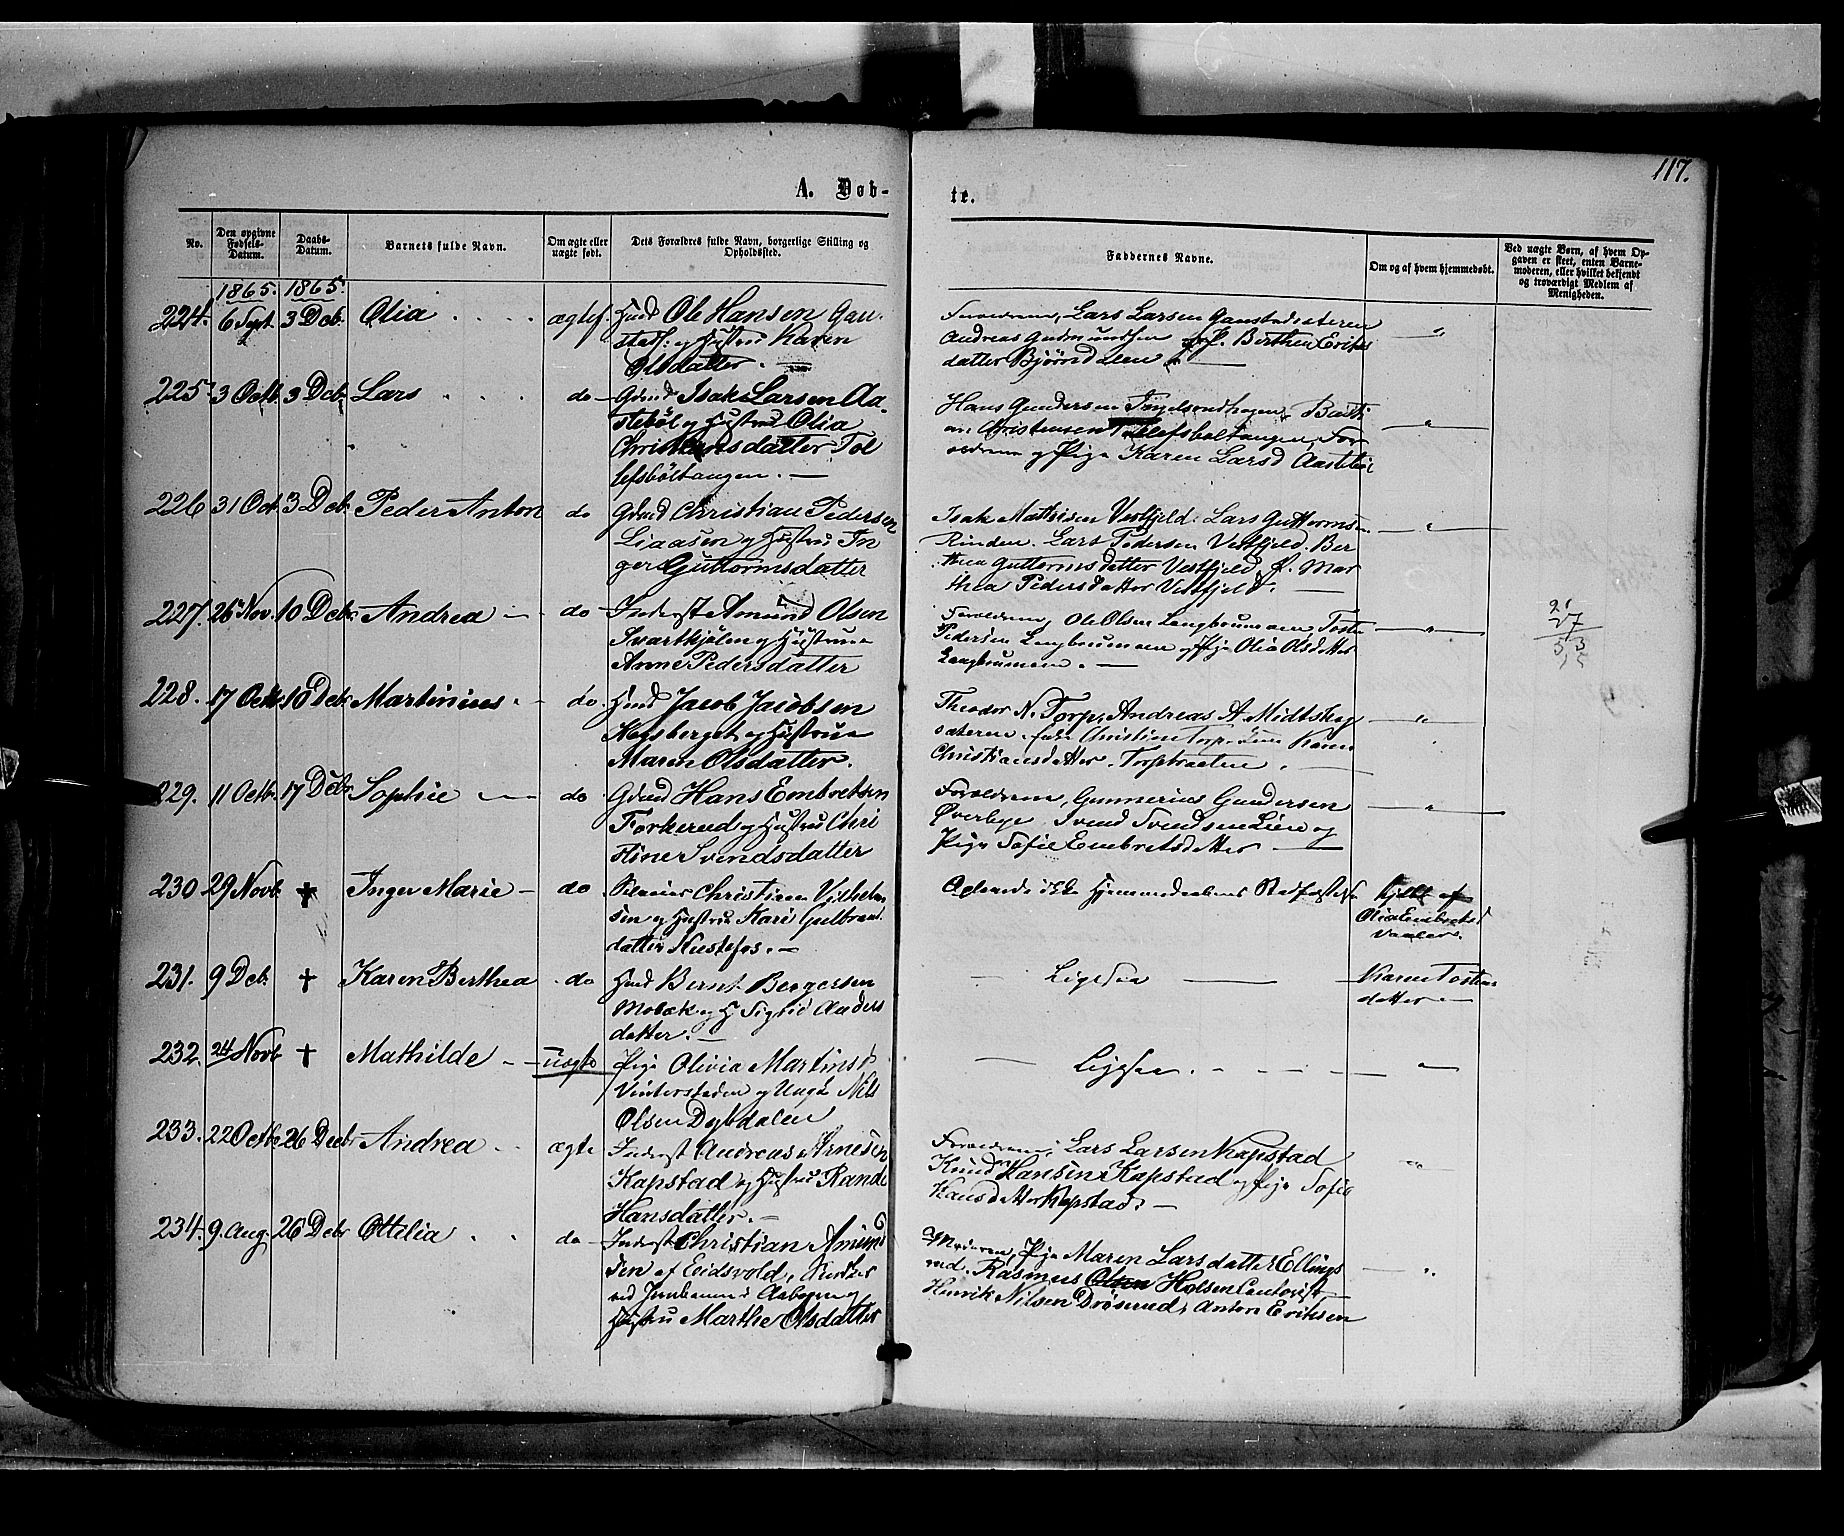 117.
A. Døb-
te.
No.
Den opgivne Fødsels-Datum.
Daabs-Datum.
Barnets fulde Navn.
Om ægte eller uægte født.
Dets Forældres fulde Navn, borgerlige Stilling og Opholdssted.
Faddernes Navne.
Om og af hvem hjemmedøbt.
Ved uægte Børn, af hvem Opgaven er skeet, enten Barnemoderen, eller hvilket bekjendt og troværdigt Medlem af Menigheden.
1865. 1865.
224. 6 Sept. 3 Deb. Olia ægtef. Hmd Ole Hansen Gau-
stads. og Hustru Karen
Olsdatter.
Forældrene, Lars Larsen Gaustadeteren
Andreas Gudmundsen Berthea Eriks
datter Bjørndalen
225 3 Octb 3 Deb. Lars do Gdmd Isak Larsen Aa-
stebøl og Hustru Olia
Christiansdatter Tol
lefsbøltangen.
Hans Gundersen Basti
an Christensen Tollefsbøltangen, For
ældrene og Pige Karen Larsd Aastebøl
226 31 Oct. 3 Deb. Peder Anton do Gdmd Christian Pedersen
Liaasen og Hustru In
ger Guttormsdatter
Isak Mathisen Vestfjeld. Lars Guttorms.
Rinden. Lars Pedersen Vestfjeld. Ber
thea Guttormsdatter Vestfjeld. P. Mar
thea Pedersdatter Vestfjeld.
227. 26 Nov. 10 Deb. Andrea do Inderst Amund Olsen
Svartkjølen og Hustru
Anne Pedersdatter
Forældrene, Ole Olsen Langbrunnen, Toste
Pedersen Langbrunnen og Pige Olia Olsdatter
Langbrunnen.
27
228. 17 Octb. 10 Deb. Martinius do. Hmd Jacob Jacobsen
og Hustru
Maren Olsdatter.
Theodor N. Torp, Andreas A. Midtskog
sæteren. Christian Torp. Karen
Christiansdatter. Torpbraaten.
229. 11 Octb. 17 Deb. Sophie do Gdmd Hans Embretsen
Forkerud og Hustru Chri
stine Svendsdatter
Forældrene, Gunnerius Gundersen
Øverbye, Svend Svendsen Lien og
Pige Sofie Embretsdatter
230 29 Novb. † Inger Marie do Christian Vilhelm
sen og Hustru Kari Gulbrand
datter Kustefos.
Oplevede ikke Hjemmedaabens Stadfæstelse
Hjdbt af
Olia Embretsd
Vaaler.
231. 9 Deb. † Karen Berthea do Hmd Bernt Bergersen
Mobæk og H. Sigrid Anders
datter.
Ligesaa
Karen Tostens
datter
232. 24 Novb † Mathilde uægte Pige Olivia Martinsd
Vintersteden og Ungk. Nils
Olsen Dybdalen
Ligesaa.
233. 22 Octb. 26 Decb Andrea ægte Inderst Andreas Arnesen
Kapstad og Hustru Rande
Hansdatter.
Forældrene, Lars Larsen Kapstad
Knud Hansen Kapstad og Pige Sofie
Hansdatter Kapstad.
234. 9. Aug. 26 Debr Ottelia do Inderst Christian Amund
sen af Eidsvold,
ved Jernbanen i Aabogen og
Hustru Marthe Olsdatter
Moderen, Pige Maren Larsdatter Ellings
rud. Rasmus Olsen Holsen
Henrik Nilsen Drøserud, Anton Eriksen